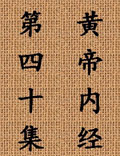 黄帝内经
第四十集